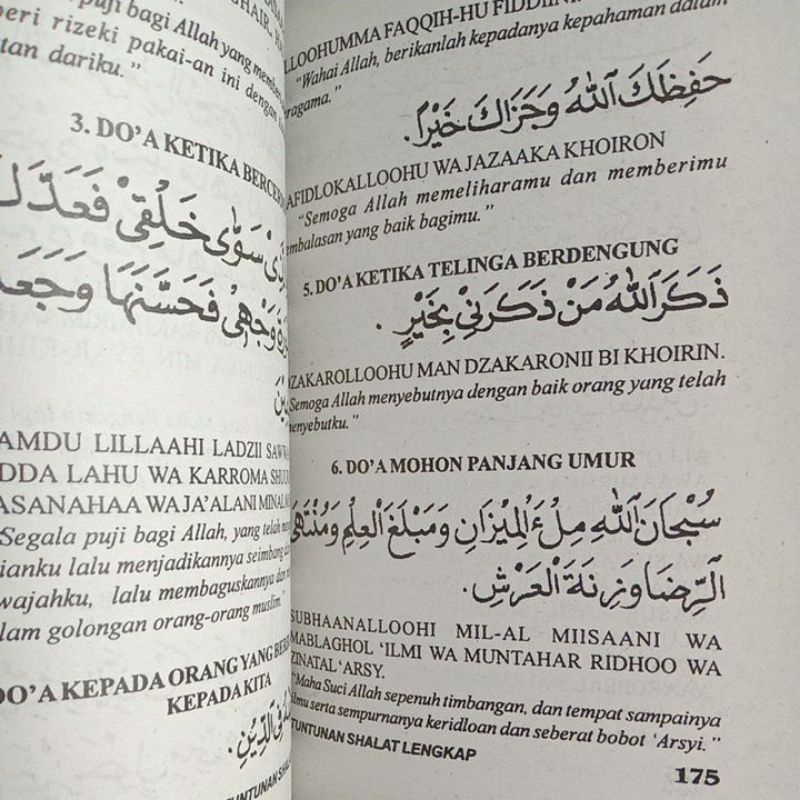 puji bagi Allah yang
beri rizeki pakai-an ini dengan
dariku."
3. DO'A KETIKA
سَوّٰى خَلْقِيْ فَعَدَّلَ
وَجْهِيْ فَحَسَّنَهَا وَجَعَلَ
LILLAAHI LADZII
LAHU WA KARROMA
WAJA'ALANI MINAL
Segala puji bagi Allah, yang telah
lalu menjadikannya seimbang
wajahku, lalu membaguskannya dan
golongan orang-orang muslim"
DO'A KEPADA ORANG YANG
KEPADA KITA
فِى الدِّيْنِ.
TUNTUNAN SHALAT
FAQQIH-HU
"Wahai Allah, berikanlah kepadanya kepahaman dalam
حَفِظَكَ اللّٰهُ وَجَزَاكَ خَيْرًا.
WA JAZAAKA KHOIRON
"Semoga Allah memeliharamu dan memberimu
yang baik bagimu."
5. DO'A KETIKA TELINGA BERDENGUNG
ذَكَرَ اللّٰهُ مَنْ ذَكَرَنِيْ بِخَيْرٍ.
MAN DZAKARONII BI KHOIRIN.
Semoga Allah menyebutnya dengan baik orang yang telah
6. DO'A MOHON PANJANG UMUR
سُبْحَانَ اللّٰهِ مِلْءَ الْمِيْزَانِ وَمَبْلَغَ الْعِلْمِ وَمُنْتَهَى
الرِّضَا وَزِنَةَ الْعَرْشِ.
SUBHAANALLOOHI MIL-AL MIISAANI WA
MABLAGHOL 'ILMI WA MUNTAHAR RIDHOO WA
ZINATAL 'ARSY.
"Maha Suci Allah sepenuh timbangan, dan tempat sampainya
ilmu serta sempurnanya keridloan dan seberat bobot 'Arsyi."
TUNTUNAN SHALAT LENGKAP
175